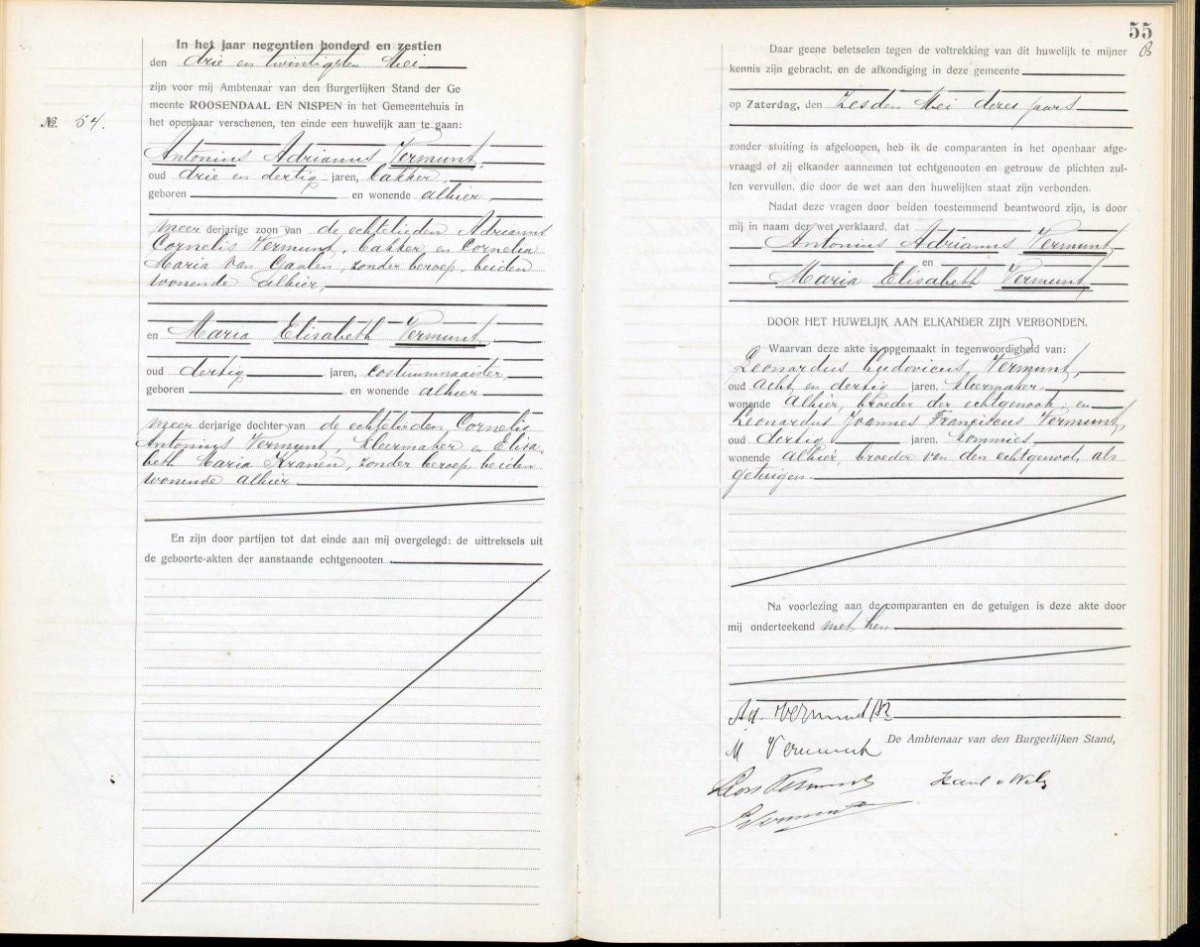 In het jaar negentien honderd en zestien
den drie en twintigsten Mei
zijn voor mij Ambtenaar van den Burgerlijken Stand der Ge
meente ROOSENDAAL EN NISPEN in het Gemeentehuis in
№ 54.
het openbaar verschenen, ten einde een huwelijk aan te gaan:
Antonius Adrianus Vermunt,
oud drie en dertig jaren, bakker,
geboren en wonende alhier,
meer derjarige zoon van de echtelieden Adrianus
Cornelis Vermunt, bakker, en Cornelia
Maria van Gaalen, zonder beroep, beiden
wonende alhier,
en Maria Elisabeth Vermunt,
oud dertig jaren, costuumnaaister,
geboren en wonende alhier
meer derjarige dochter van de echtelieden Cornelis
Antonius Vermunt, kleermaker en Elisa-
beth Maria Kranen, zonder beroep beiden
wonende alhier
En zijn door partijen tot dat einde aan mij overgelegd: de uittreksels uit
de geboorte-akten der aanstaande echtgenooten
55
Daar geene beletselen tegen de voltrekking van dit huwelijk te mijner
kennis zijn gebracht, en de afkondiging in deze gemeente
op Zaterdag, den zesden Mei dezes jaars
zonder stuiting is afgeloopen, heb ik de comparanten in het openbaar afge-
vraagd of zij elkander aannemen tot echtgenooten en getrouw de plichten zul-
len vervullen, die door de wet aan den huwelijken staat zijn verbonden.
Nadat deze vragen door beiden toestemmend beantwoord zijn, is door
mij in naam der wet verklaard, dat
Antonius Adrianus Vermunt
en
Maria Elisabeth Vermunt
DOOR HET HUWELIJK AAN ELKANDER ZIJN VERBONDEN.
Waarvan deze akte is opgemaakt in tegenwoordigheid van:
Leonardus Ludovicus Vermunt,
oud acht en dertig jaren, kleermaker,
wonende alhier, broeder der echtgenoot, en
Leonardus Joannes Franciscus Vermunt,
oud dertig jaren. kommies
wonende alhier, broeder van den echtgenoot, als
getuigen.
Na voorlezing aan de comparanten en de getuigen is deze akte door
mij onderteekend met hen
Vermunt
De Ambtenaar van den Burgerlijken Stand,
M Vermunt
Vermunt
Vermunt